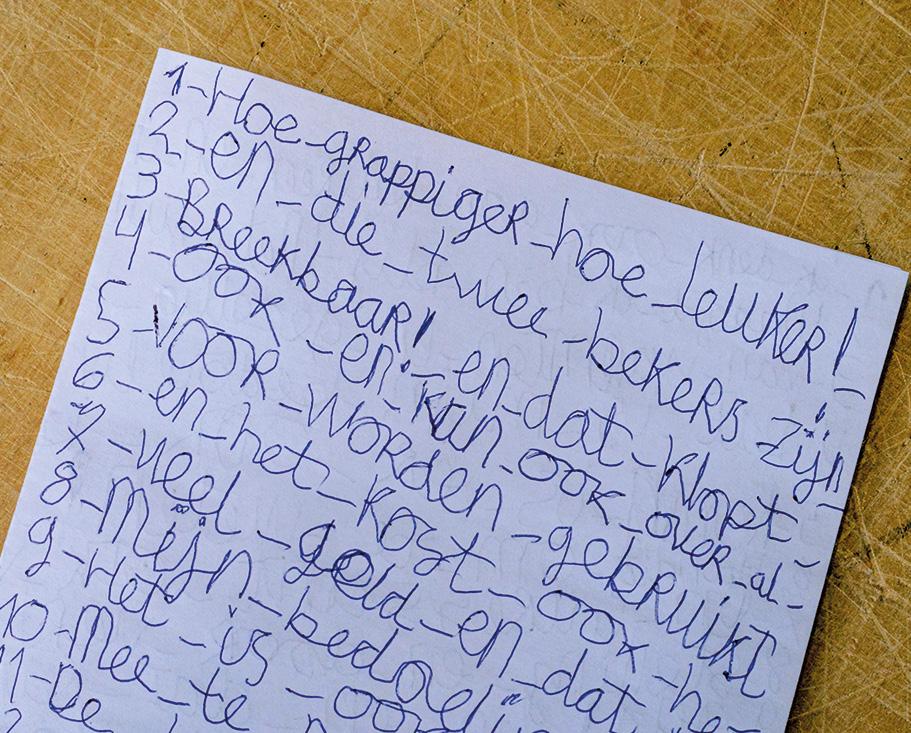 1-Hoe-grappiger-hoe-leuker!-
2-en-die-twee-bekers-zijn-
3-Breekbaar!-en-dat-klopt-
4-ook-en-kan-ook-over-al-
5-voor-worden-gebruikt
6-en-het-kost-ook-he-
7-veel-geld-en-dat
8-Mijn-
9-Het-is-
10-Mee-te-
11-De